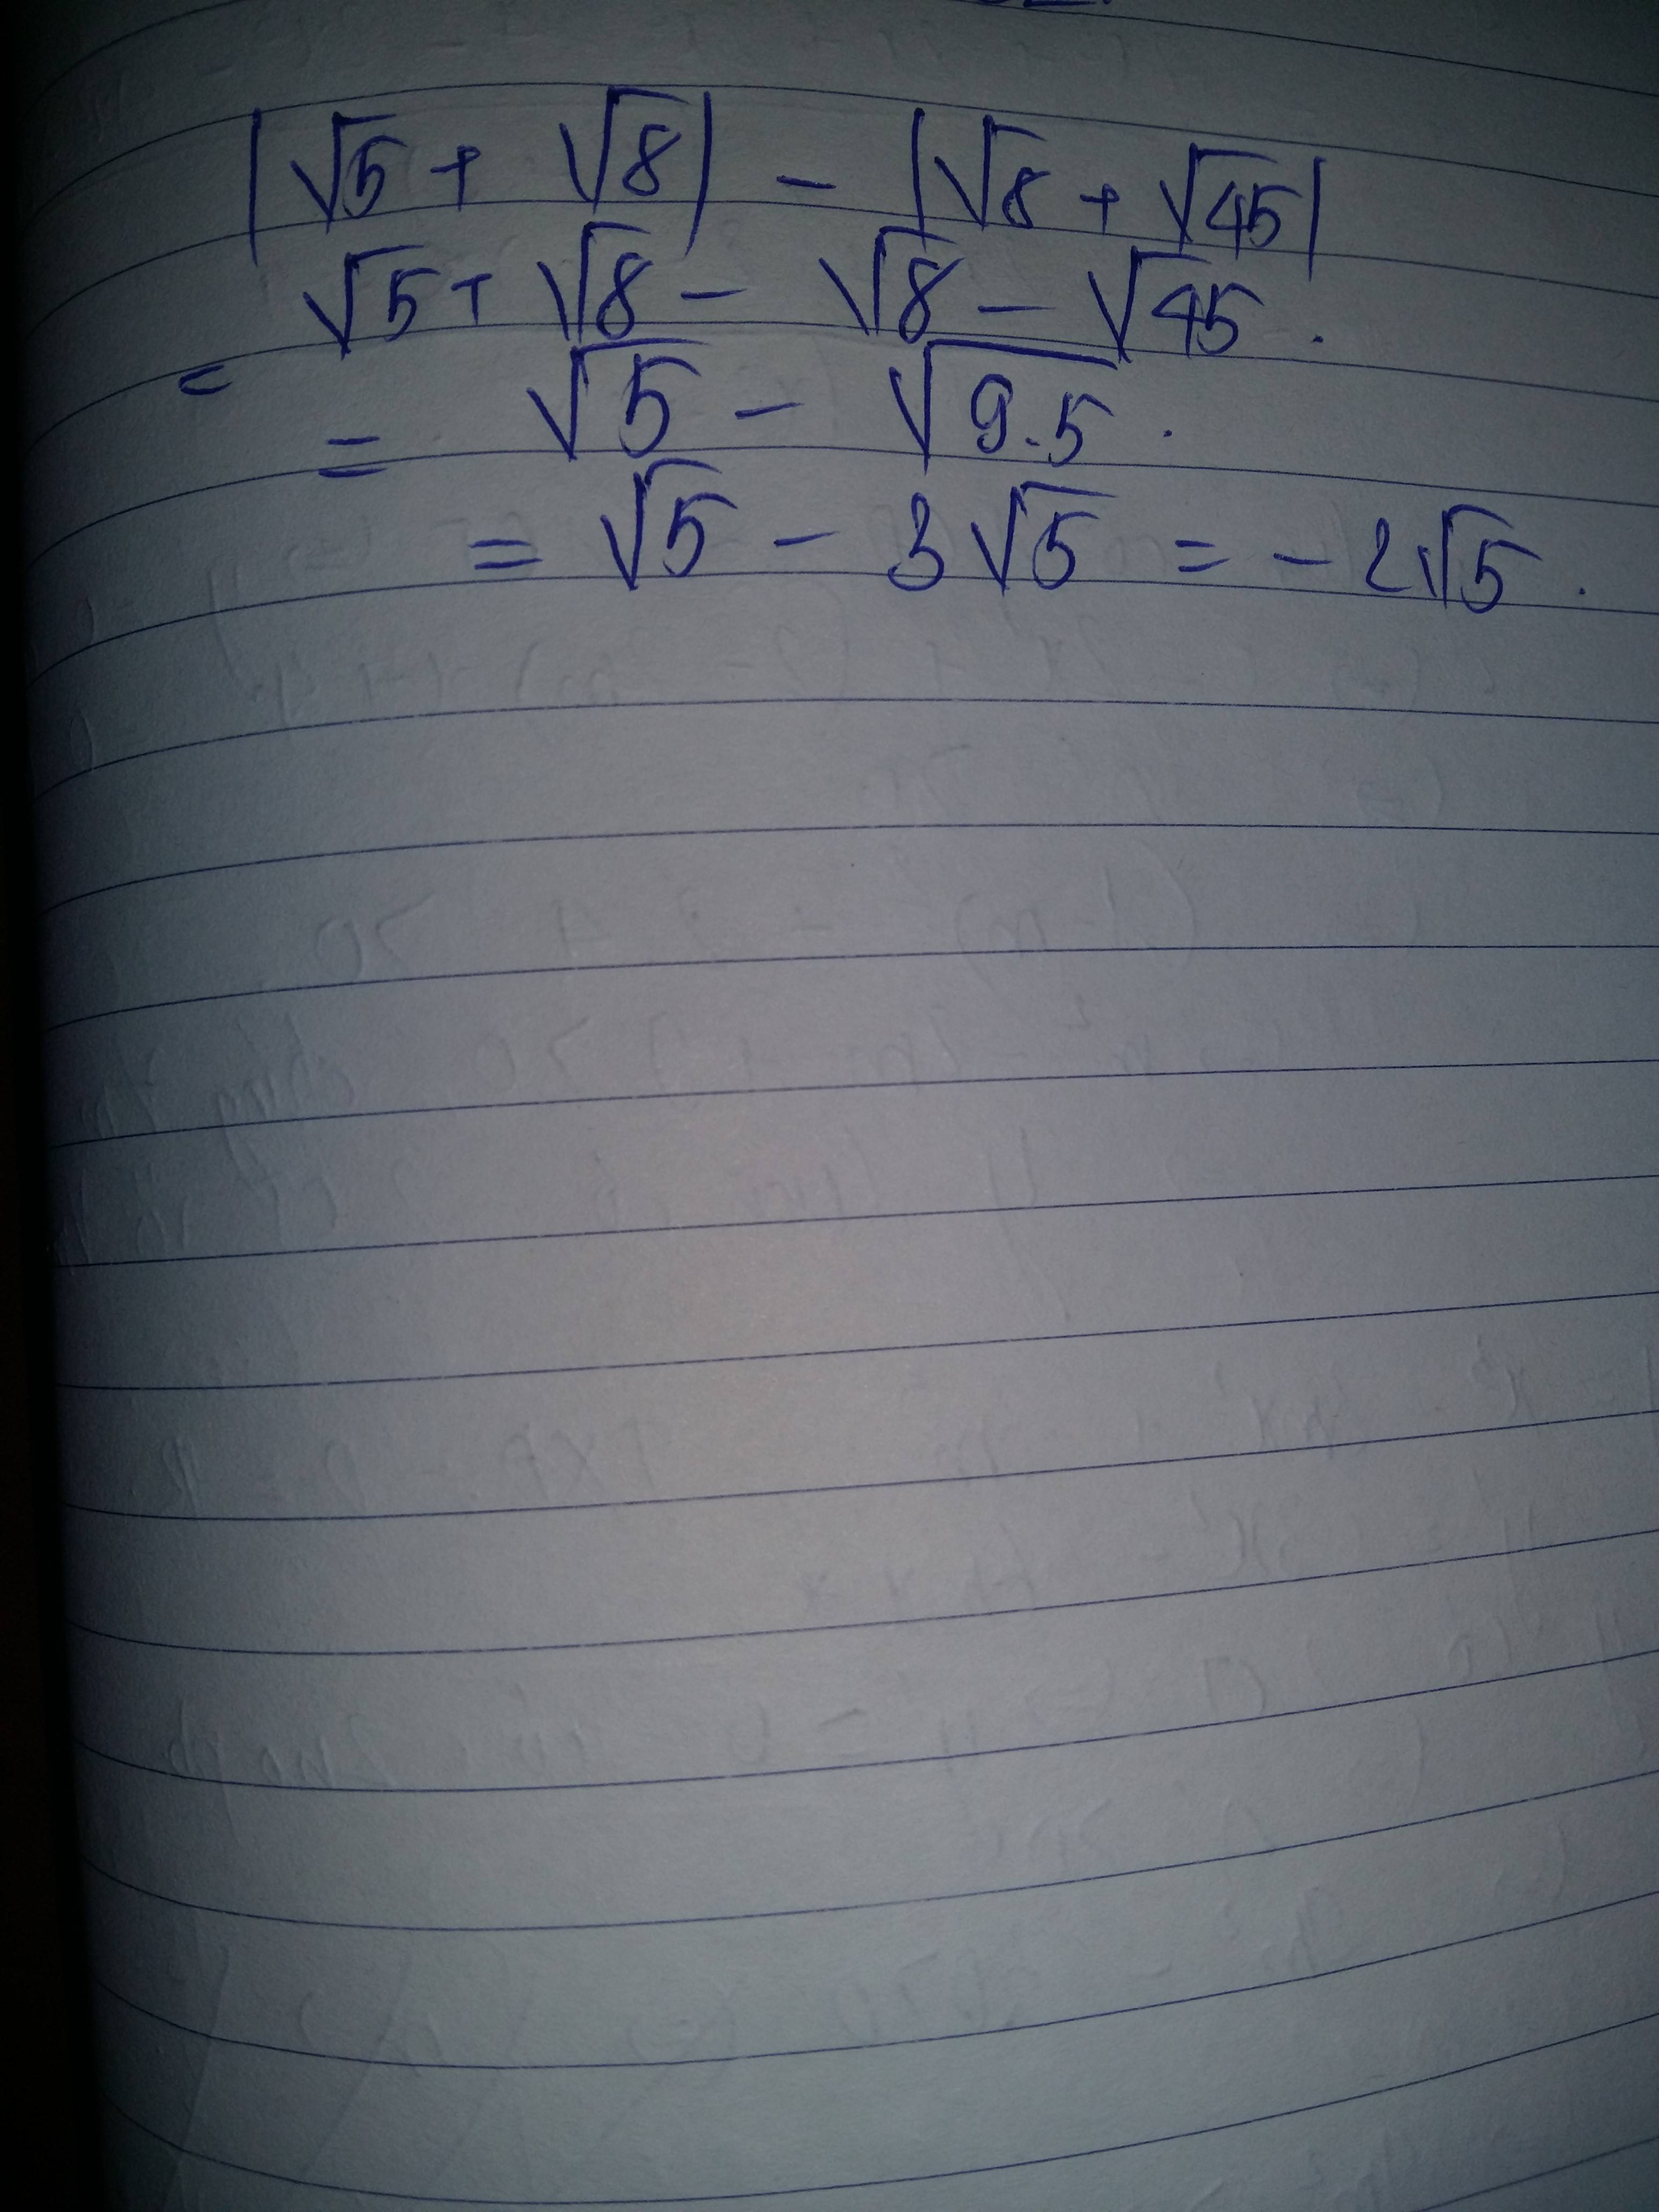 |√5 + √8| - |√8 + √45|
√5 + √8 - √8 - √45.
= √5 - √9.5.
= √5 - 3√5 = -2√5.